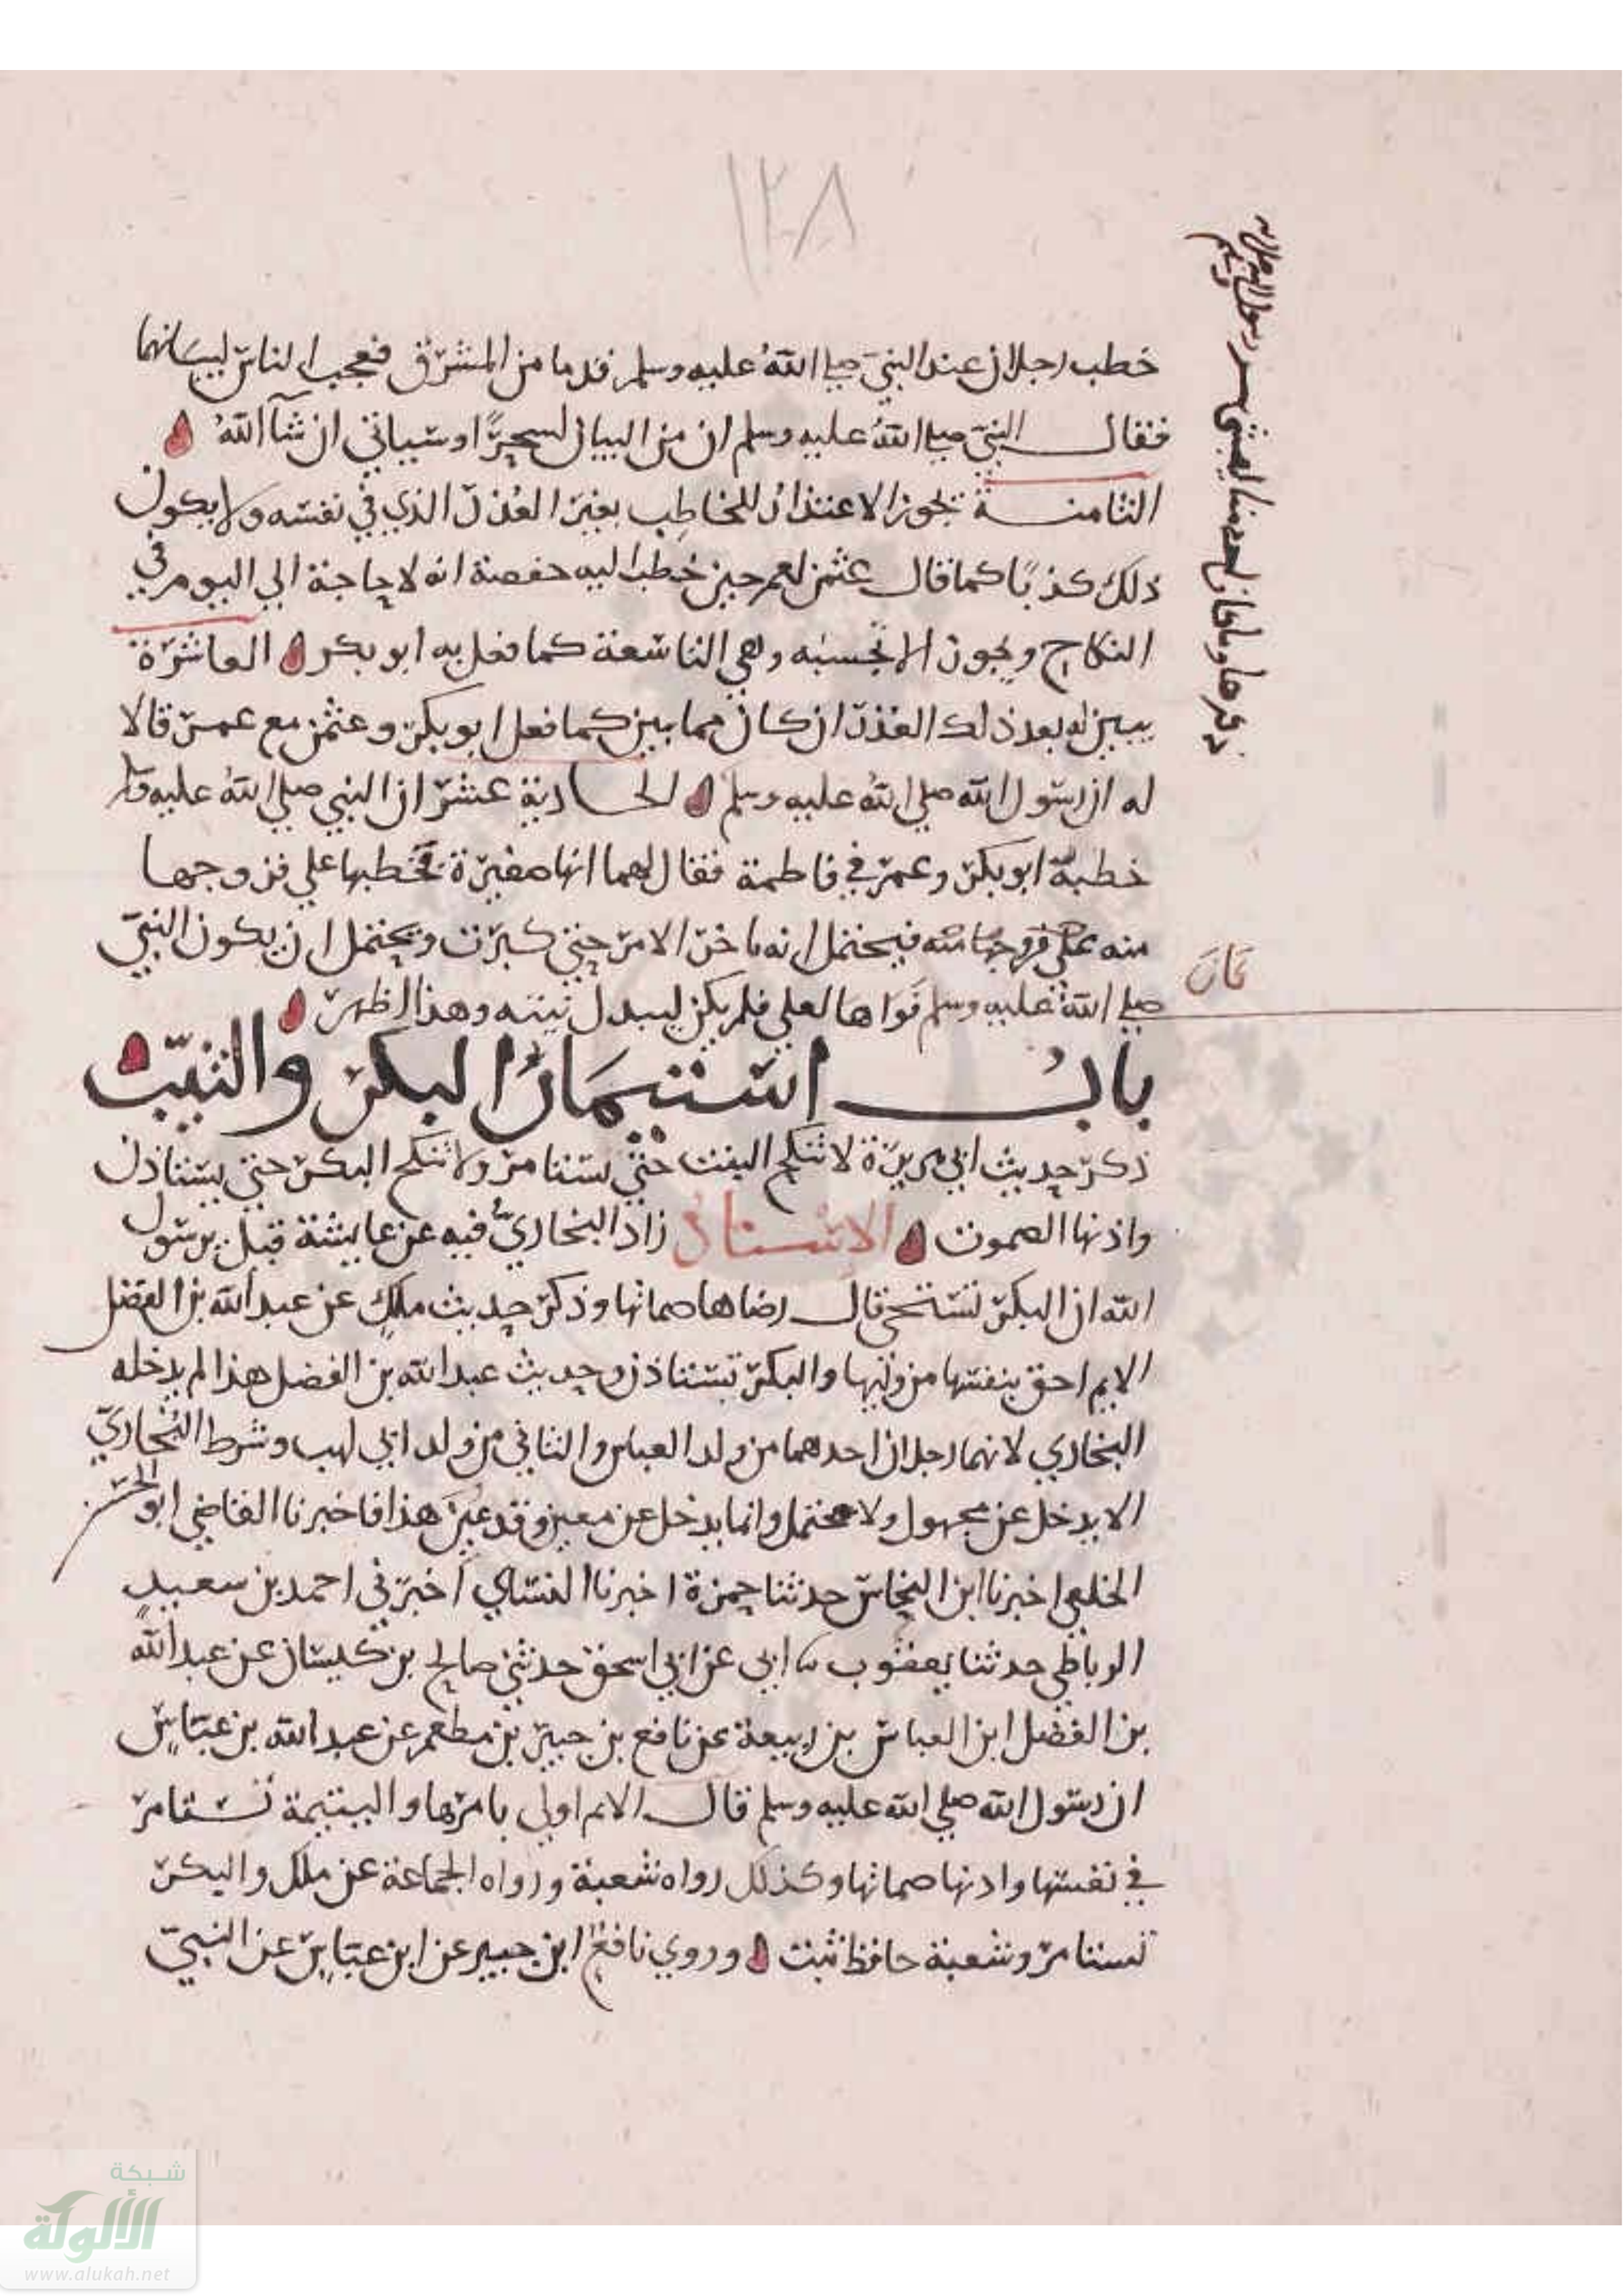 ١٢٨
خطب رجلان عند النبي صلى الله عليه وسلم قدما من المشرق فعجب الناس لبيانهما
فقال النبي صلى الله عليه وسلم ان من البيان لسحرًا وسياتي ان شآ الله
الثامنة تجوز الاعتذار للخاطب بغير العذر الذي في نفسه ولا يكون
ذلك كذبًا كما قال عثمن لعمر حين خطب اليه حفصة انه لا حاجة الي اليوم في
النكاح ويجوز الا تحسبه وهي التاسعة كما فعل به ابو بكر العاشرة
يبين له بعد ذلك العذر ان كان مما يبين كما فعل ابو بكر وعثمن مع عمر قالا
له ان رسول الله صلي الله عليه وسلم الحادية عشر ان النبي صلي الله عليه
خطبه ابو بكر وعمر في فاطمة فقال لهما انها صغيرة فخطبها علي فزوجها
منه فيحتمل انه ما خر الامر حتي كبرت ويحتمل ان يكون النبي
صلي الله عليه وسلم نواها لعلي فلم يكن ليبدل نيته وهذا اظهر
باب استيمار البكر والثيب
ذكر حديث ابي هريرة لا تنكح الثيب حتي تستامر ولا تنكح البكر حتي تستاذن
واذنها الصموت الاسناد زاد البخاري فيه عن عايشة قيل يرسول
الله ان البكر تستحي قال رضاها صماتها وذكر حديث ملك عن عبد الله بن الفضل
الايم احق بنفسها من وليها والبكر تستاذن وحديث عبد الله بن الفضل هذا لم يدخله
البخاري لانهما رجلان احدهما من ولد العباس والثاني من ولد ابي لهب وشرط البخاري
الا يدخل عن مجهول ولا محتمل وانما يدخل عن معين وقد عين هذا فاخبرنا القاضي ابو الحسن
الخلعي اخبرنا ابن النحاس حدثنا حمزة اخبرنا النساي اخبرني احمد بن سعيد
الرباطي حدثنا يعقوب ثنا ابي عن ابي اسحق حدثني صالح بن كيسان عن عبد الله
بن الفضل ابن العباس بن ربيعة عن نافع بن جبير بن مطعم عن عبد الله بن عباس
ان رسول الله صلي الله عليه وسلم قال الايم اولي بامرها واليتيمة تستامر
في نفسها واذنها صماتها وكذلك رواه شعبة ورواه الجماعة عن ملك والبكر
تستامر وشعبة حافظ ثبت وروي نافع ابن جبير عن ابن عباس عن النبي
ذكرها وما كان احد منا ليفشي سر رسول الله صلى الله
شبكة
الألوكة
www.alukah.net